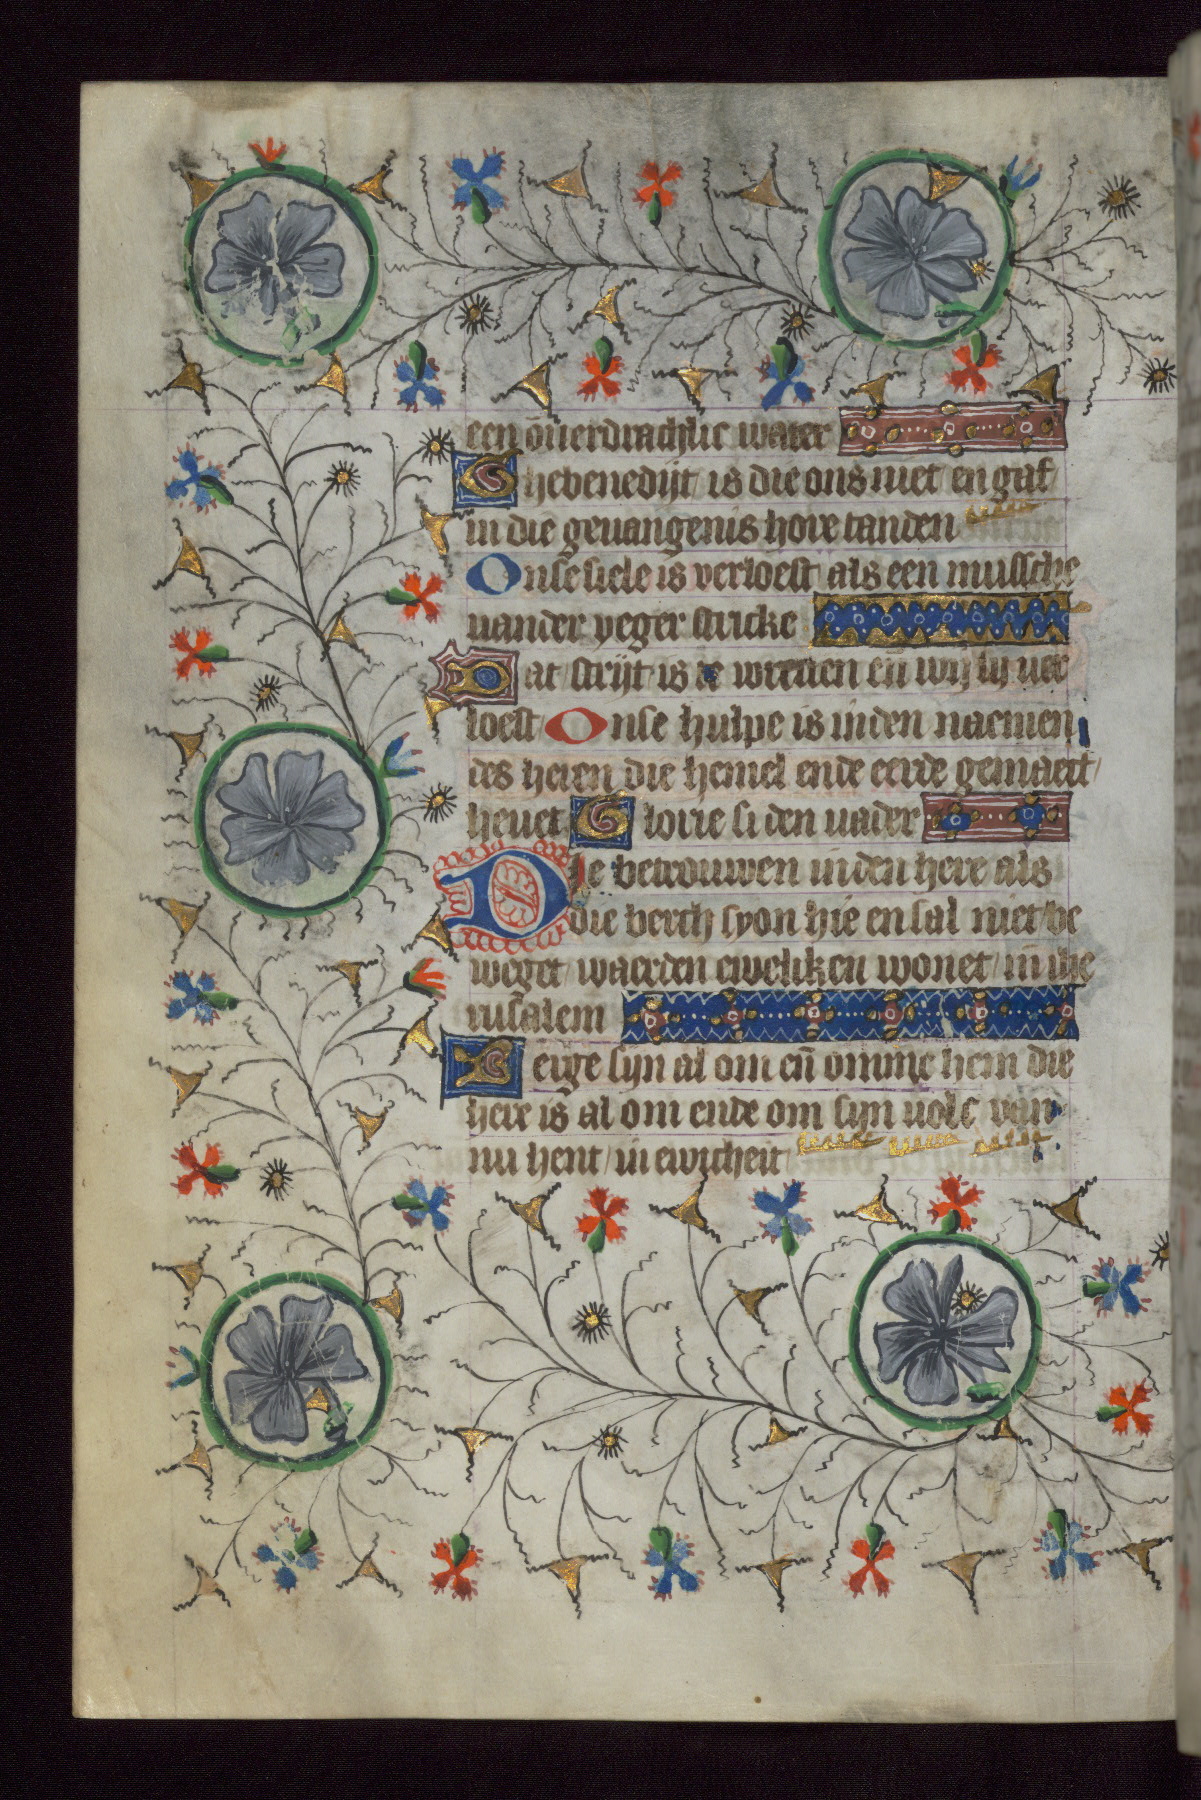 een ouerdrachlic water
Ghebenedijt is die ons niet en gaf
in die geuangenis hore tanden
Onse siele is verloest als een mussche
uander yeger stricke
Dat strijt is te wreuen en̄ wij sij ver
loest Onse hulpe is inden naemen
des heren die hemel ende eerde gemaect
heuet Glorie si den uader
Die betrouwen inden here als
die berch syon hie en sal niet be
weget waerden eweliken wonet in ihe
rusalem
Berge sijn al om en̄ omme hem die
here is al om ende om sijn uolc van
nu hent in ewicheit